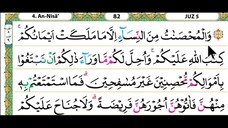 4. An-Nisā' 82 JUZ 5
وَالْمُحْصَنٰتُ مِنَ النِّسَاۤءِ اِلَّا مَا مَلَكَتْ اَيْمَانُكُمْ ۚ
كِتٰبَ اللّٰهِ عَلَيْكُمْ ۚ وَاُحِلَّ لَكُمْ مَّا وَرَاۤءَ ذٰلِكُمْ اَنْ تَبْتَغُوْا
بِاَمْوَالِكُمْ مُّحْصِنِيْنَ غَيْرَ مُسٰفِحِيْنَ ۗ فَمَا اسْتَمْتَعْتُمْ بِهٖ
مِنْهُنَّ فَاٰتُوْهُنَّ اُجُوْرَهُنَّ فَرِيْضَةً ۗ وَلَا جُنَاحَ عَلَيْكُمْ